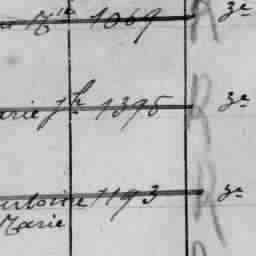 Mie 1069 R 3e
arie Jh 1395 R 3e
ntoine 1193 R 3e
Marie